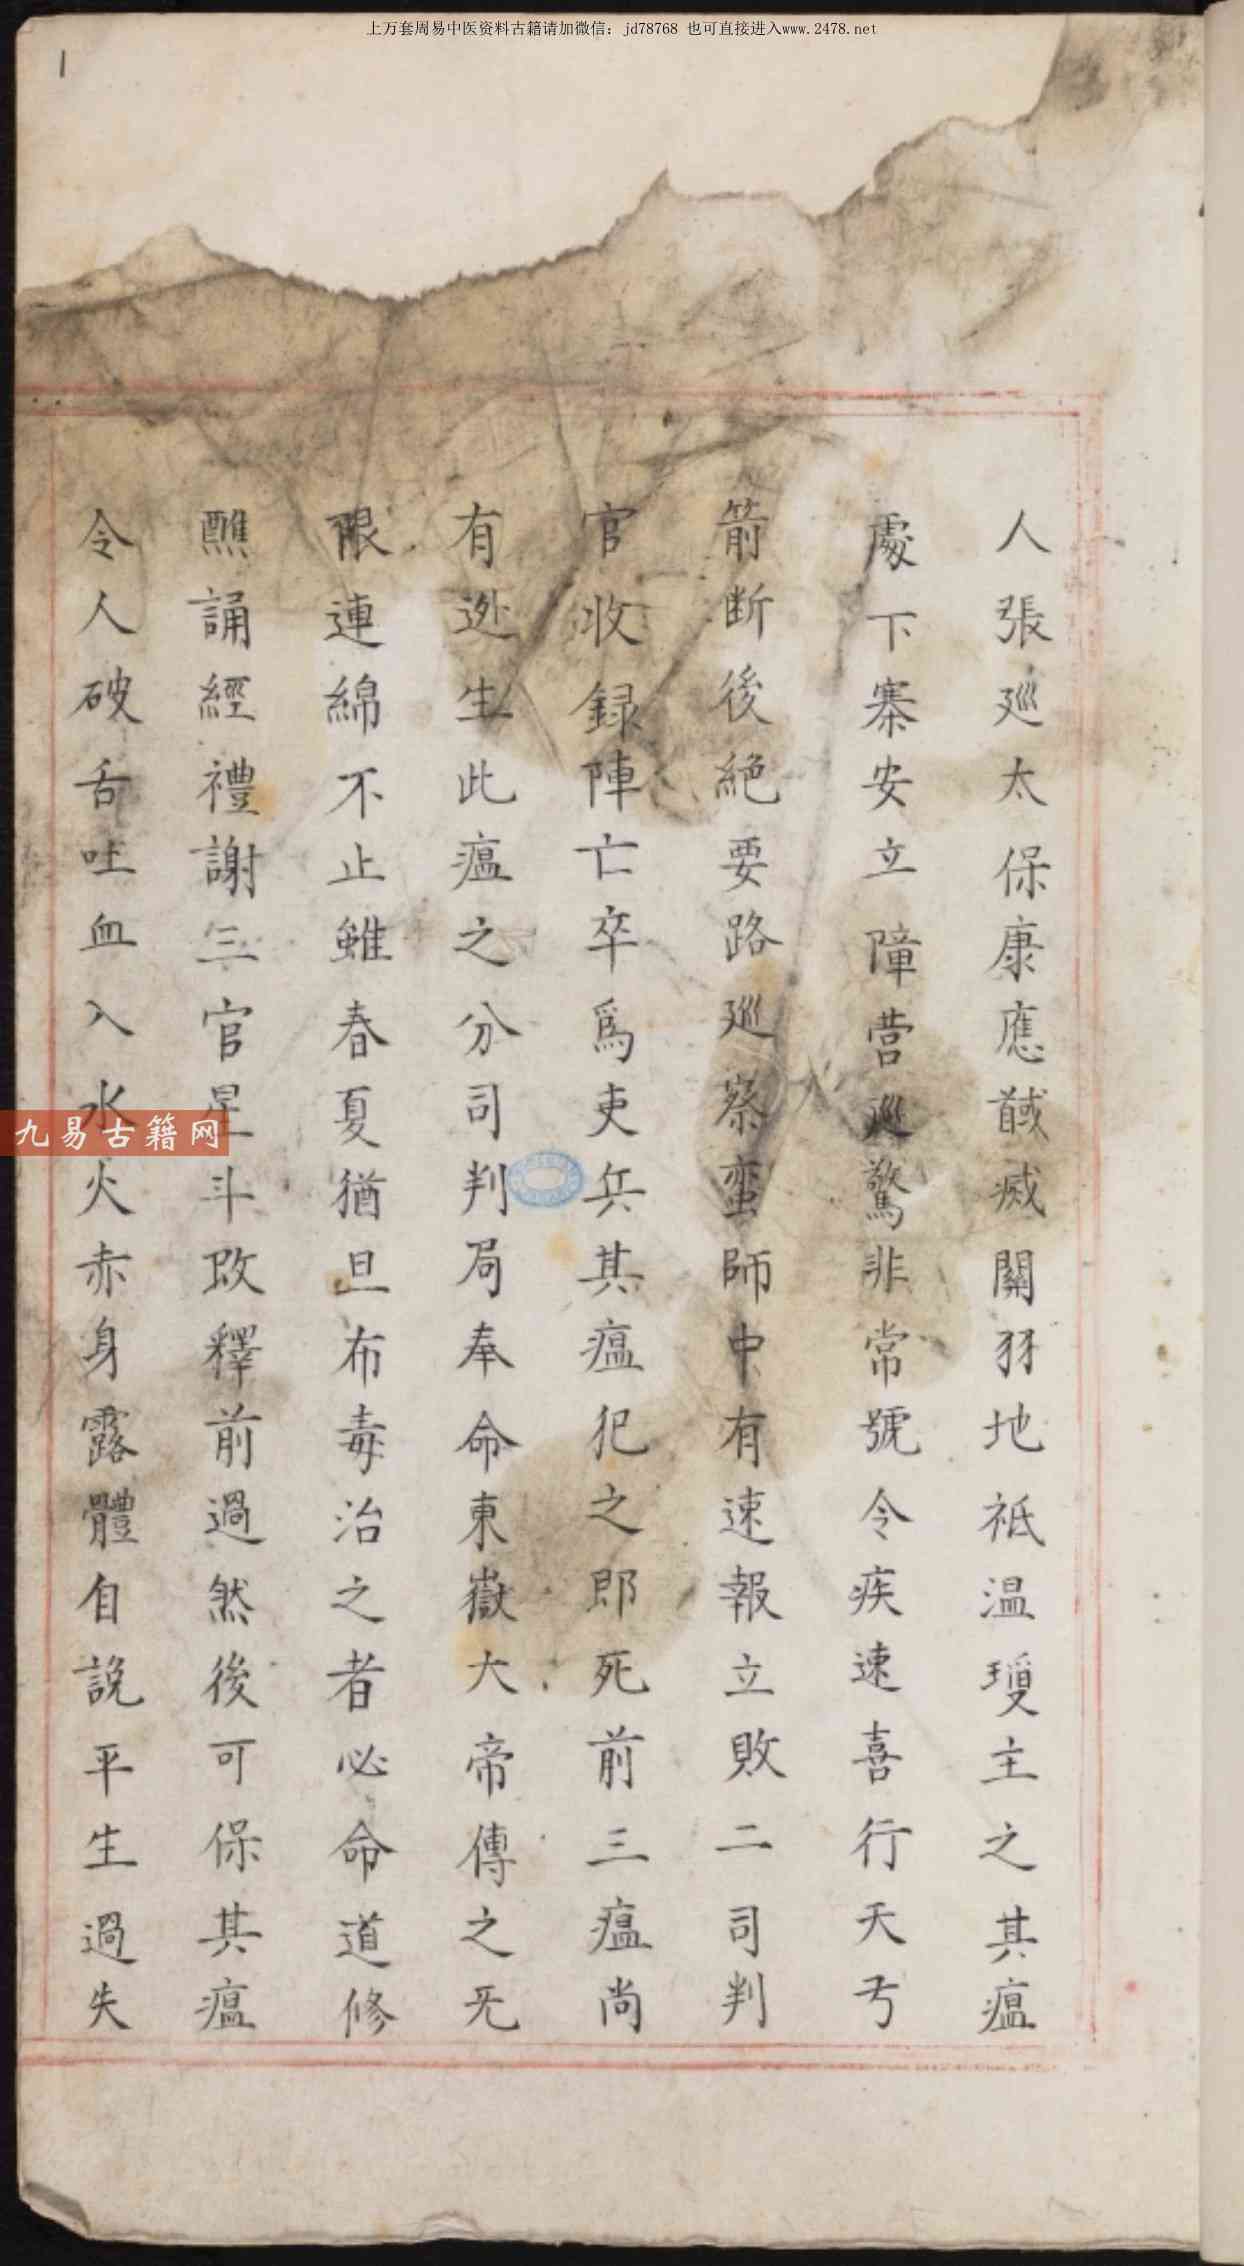 上万套周易中医资料古籍请加微信：jd78768 也可直接进入www.2478.net
1
人張巡太保康應馘滅關羽地祇温瓊主之其瘟
處下寨安立障营廵驚非常號令疾速喜行天丂
箭断後絶要路廵察蛮師中有速報立敗二司判
官收録陣亡卒爲吏兵其瘟犯之即死前三瘟尚
有迯生此瘟之分司判局奉命東嶽大帝傳之旡
限連綿不止雖春夏猶旦布毒治之者必命道修
醮誦經禮謝三官星斗改釋前過然後可保其瘟
令人破舌吐血入水火赤身露體自說平生過失
九易古籍网